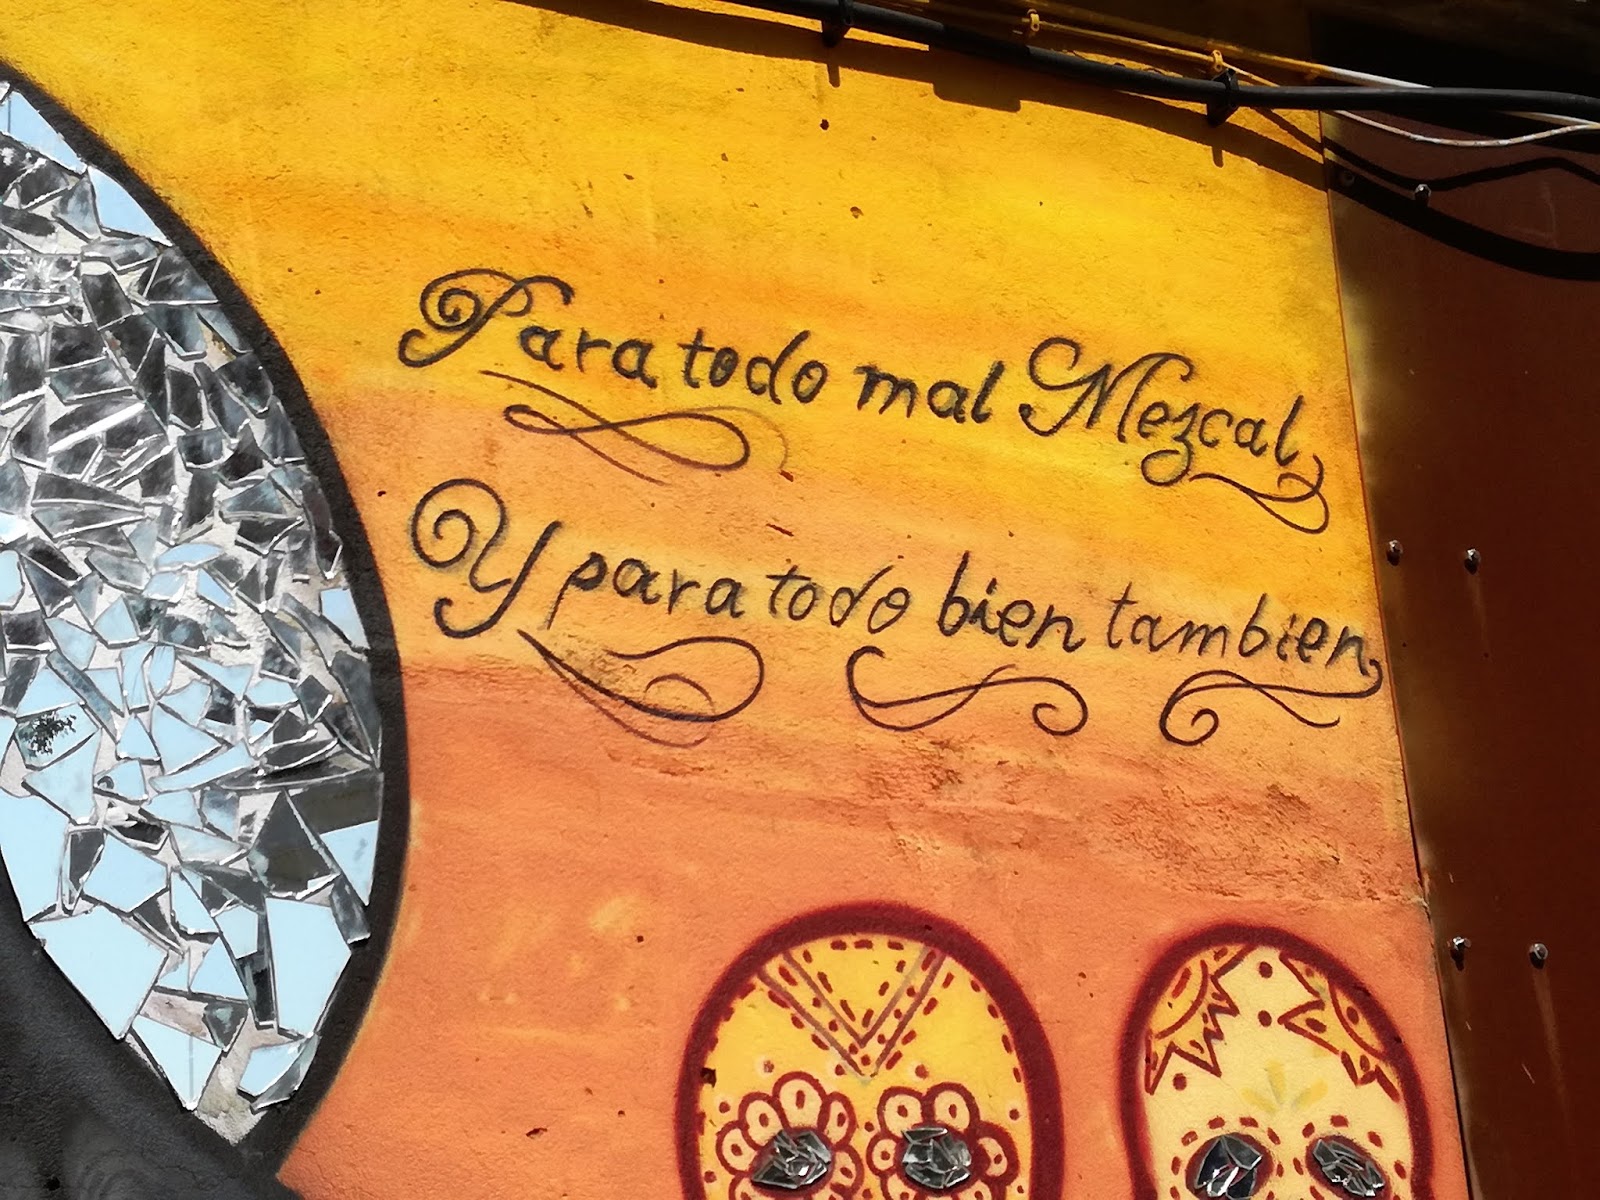 Para todo mal Mezcal
Y para todo bien tambien